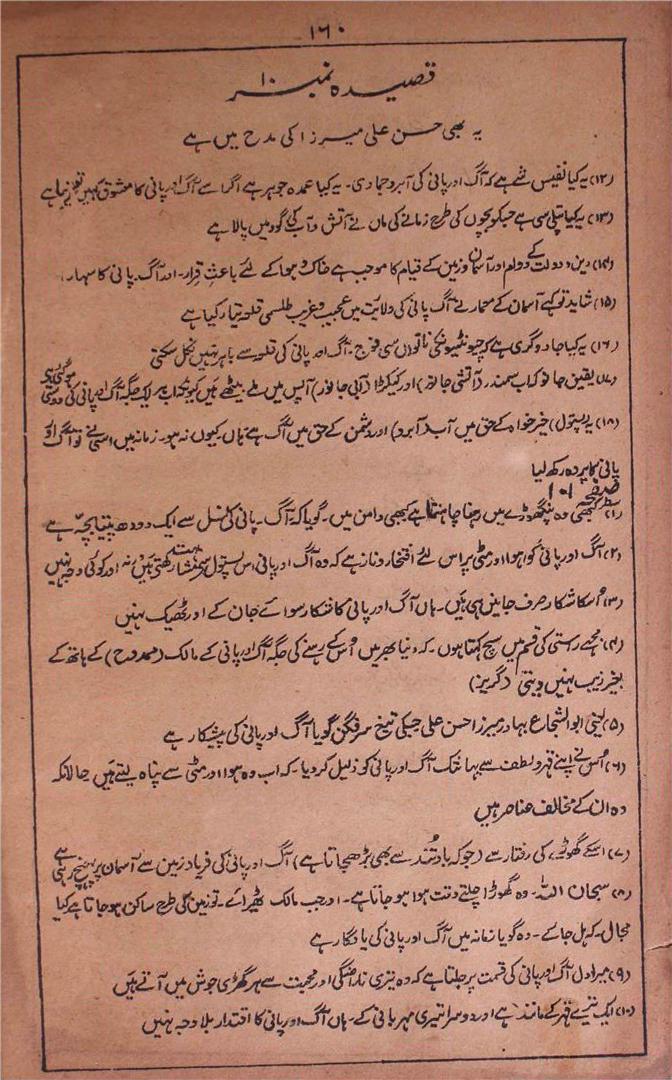 ۱۶۰
قصیدہ نمبر ۱۰
یہ بھی حسن علی میرزا کی مدح میں ہے
(۱۲) یہ کیا نفیس شے ہے کہ آگ اور پانی کی آبرو جما دی۔ یہ کیا عمدہ جوہر ہے اگر اسے آگ اور پانی کا معشوق کہیں تو زیبا ہے
(۱۳) یہ کیا پتلی سی ہے جسکو بچوں کی طرح زمانے کی ماں نے آتش و آب کی گود میں پالا ہے
(۱۴) دین و دولت کے دوام اور آسمان و زمین کے قیام کا موجب ہے خاک و ہوا کے لئے باعثِ قرار۔ اور آگ۔ پانی کا سہارا۔
(۱۵) شاید تو کہے آسمان کے معمار نے آگ پانی کی ولایت میں عجیب و غریب طلسمی قلعہ تیار کیا ہے
(۱۶) یہ کیا جادوگری ہے کہ چیونٹیونکی ناتواں سی فوج۔ آگ اور پانی کی قلعہ سے باہر نہیں نکل سکتی
(۱۷) یقین جانو کہ اب سمندر (آتشی جانور) اور کیکڑا (آبی جانور) آپس میں ملے بیٹھے ہیں کیونکہ اب ہر ایک جگہ آگ اور پانی کی دوستی ہوگئی ہے
(۱۸) یہ پستول) خیر خواہ کے حق میں آب (آبرو) اور دشمن کے حق میں آگ ہے ہاں کیوں نہ ہو۔ زمانہ میں اسی نے تو آگ اور
پانی کا پردہ رکھ لیا
صفحہ ۱۰۱
(۱) سطر کبھی وہ پنگھوڑے میں رہنا چاہتا ہے کبھی دامن میں۔ گویا کہ آگ۔ پانی کی نسل سے ایک دودھ پیتا بچہ ہے
(۲) آگ اور پانی کو ہوا اور مٹی پر اس لئے افتخار و ناز ہے کہ وہ آگ اور پانی اس پستول سے مشابہت رکھتی ہیں نہ اور کوئی وجہ نہیں
(۳) اسکا شکار صرف جانیں ہی ہیں۔ ہاں آگ اور پانی کا شکار سوائے جان کے اور ٹھیک نہیں
(۴) مجھے راستی کی قسم میں سچ کہتا ہوں۔ کہ دنیا بھر میں اُس کے رہنے کی جگہ آگ اور پانی کے مالک (ممدوح) کے ہاتھ کے
بغیر زیب نہیں دیتی (گریز)
(۵) یعنی ابو الشجاع بہادر میرزا حسن علی جسکی تیغ سر فگن گویا آگ اور پانی کی پیشکار ہے
(۶) اُس نے اپنے قہر و لطف سے یہانتک آگ اور پانی کو ذلیل کر دیا۔ کہ اب وہ ہوا اور مٹی سے پناہ لیتے ہیں حالانکہ
وہ ان کے مخالف عناصر ہیں
(۷) اسکے گھوڑے کی رفتار سے (جو کہ بادِ تُند سے بھی بڑھ جاتا ہے) آگ اور پانی کی فریاد زمین سے آسمان پر پہنچ رہی ہے
(۸) سبحان اللہ۔ وہ گھوڑا چلتے وقت ہوا ہو جاتا ہے۔ اور جب مالک ٹھیرائے۔ تو زمین کی طرح ساکن ہو جاتا ہے کیا
مجال۔ کہ ہل جائے۔ وہ گویا زمانہ میں آگ اور پانی کی یادگار ہے
(۹) میرا دل آگ اور پانی کی قسمت پر جلتا ہے کہ وہ تیری ناراضگی اور محبت سے ہر گھڑی جوش میں آتے ہیں
(۱۰) ایک تیرے قہر کے مانند ہے اور دوسرا تیری مہربانی کے۔ ہاں آگ اور پانی کا اقتدار بلا وجہ نہیں